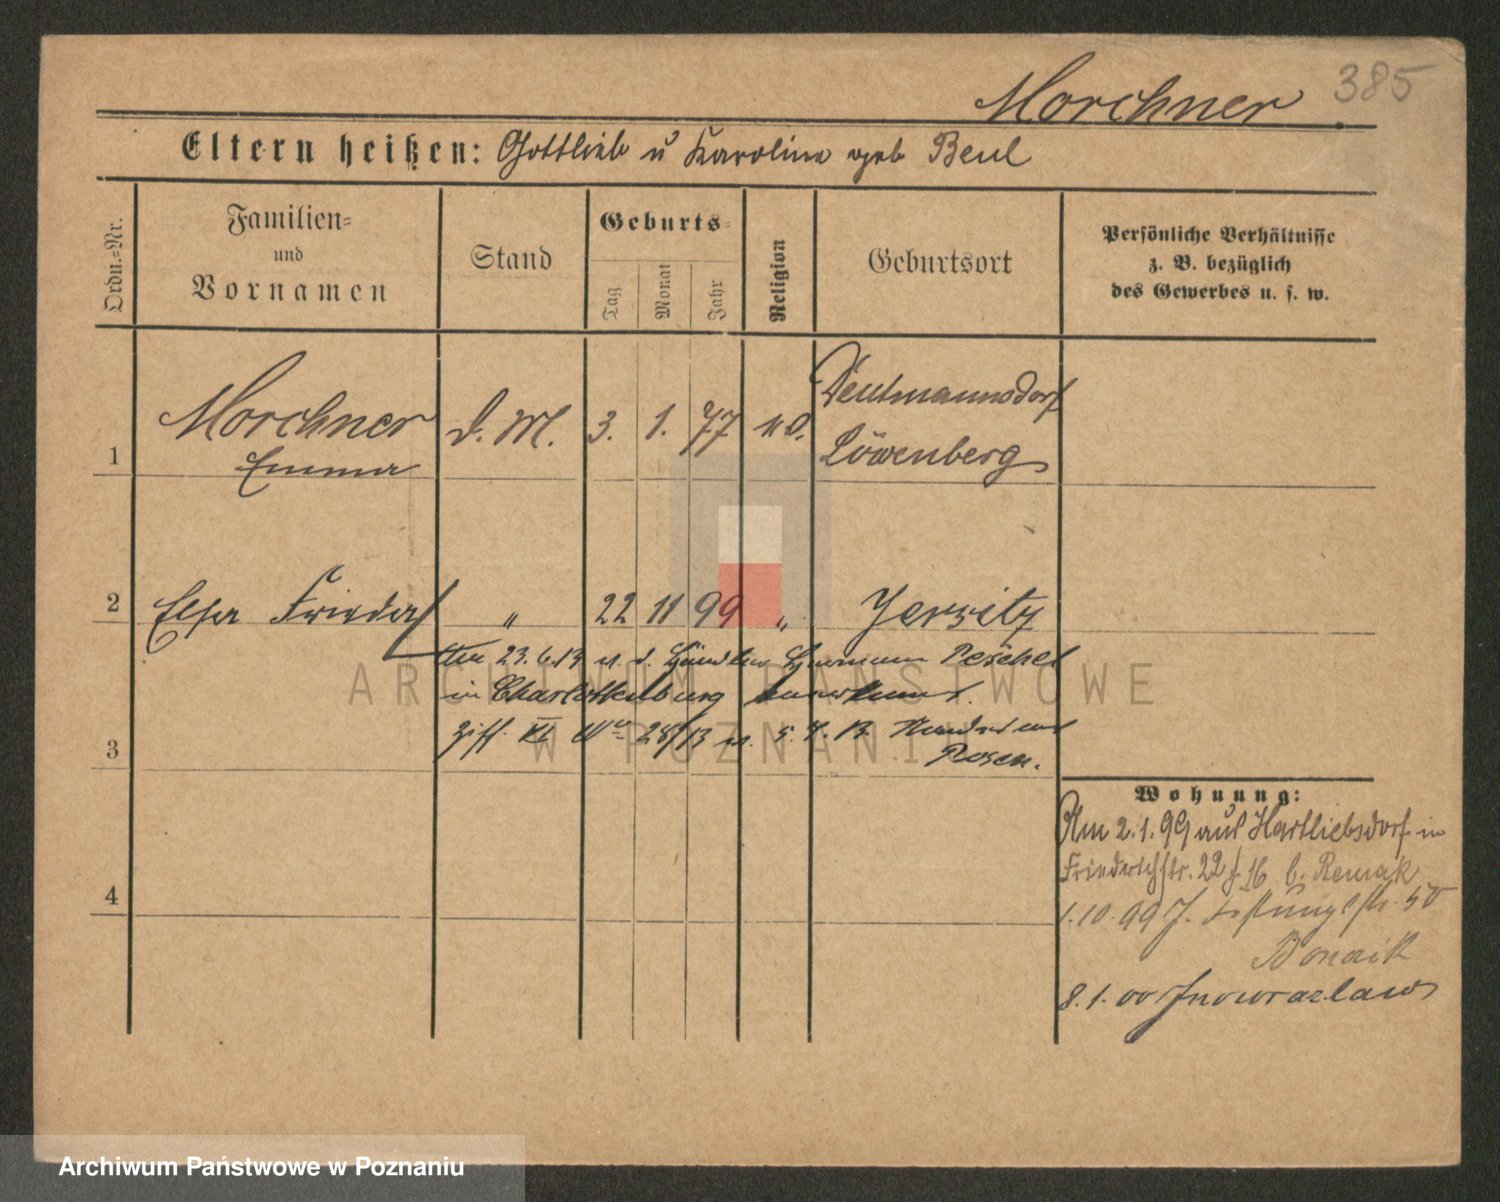 Morchner
385
Eltern heißen: Gottlieb u Karoline geb Beul
Ordn.-Nr.
Familien-
und
Vornamen
Stand
Geburts-
Tag
Monat
Jahr
Religion
Geburtsort
Persönliche Verhältnisse
z. B. bezüglich
des Gewerbes u. s. w.
1
Morchner
Emma
d. M.
3.
1.
77
Deutmannsdorf
Löwenberg
2
Elsa Frieda
"
22
11
99
"
Jersitz
23.6.13 v. d. Händler Hermann Peschel
in Charlottenburg anerkannt.
3
Ziff. XI 28/13 v. 5.7.13. Standesamt
Posen.
4
Wohnung:
Am 2.1.99 aus Hartliebsdorf in
Friedrichstr. 22 16 b. Remak
1.10.99 J. 50
8.1.00 Inowrazlaw
ARCHIWUM PAŃSTWOWE
W POZNANIU
Archiwum Państwowe w Poznaniu